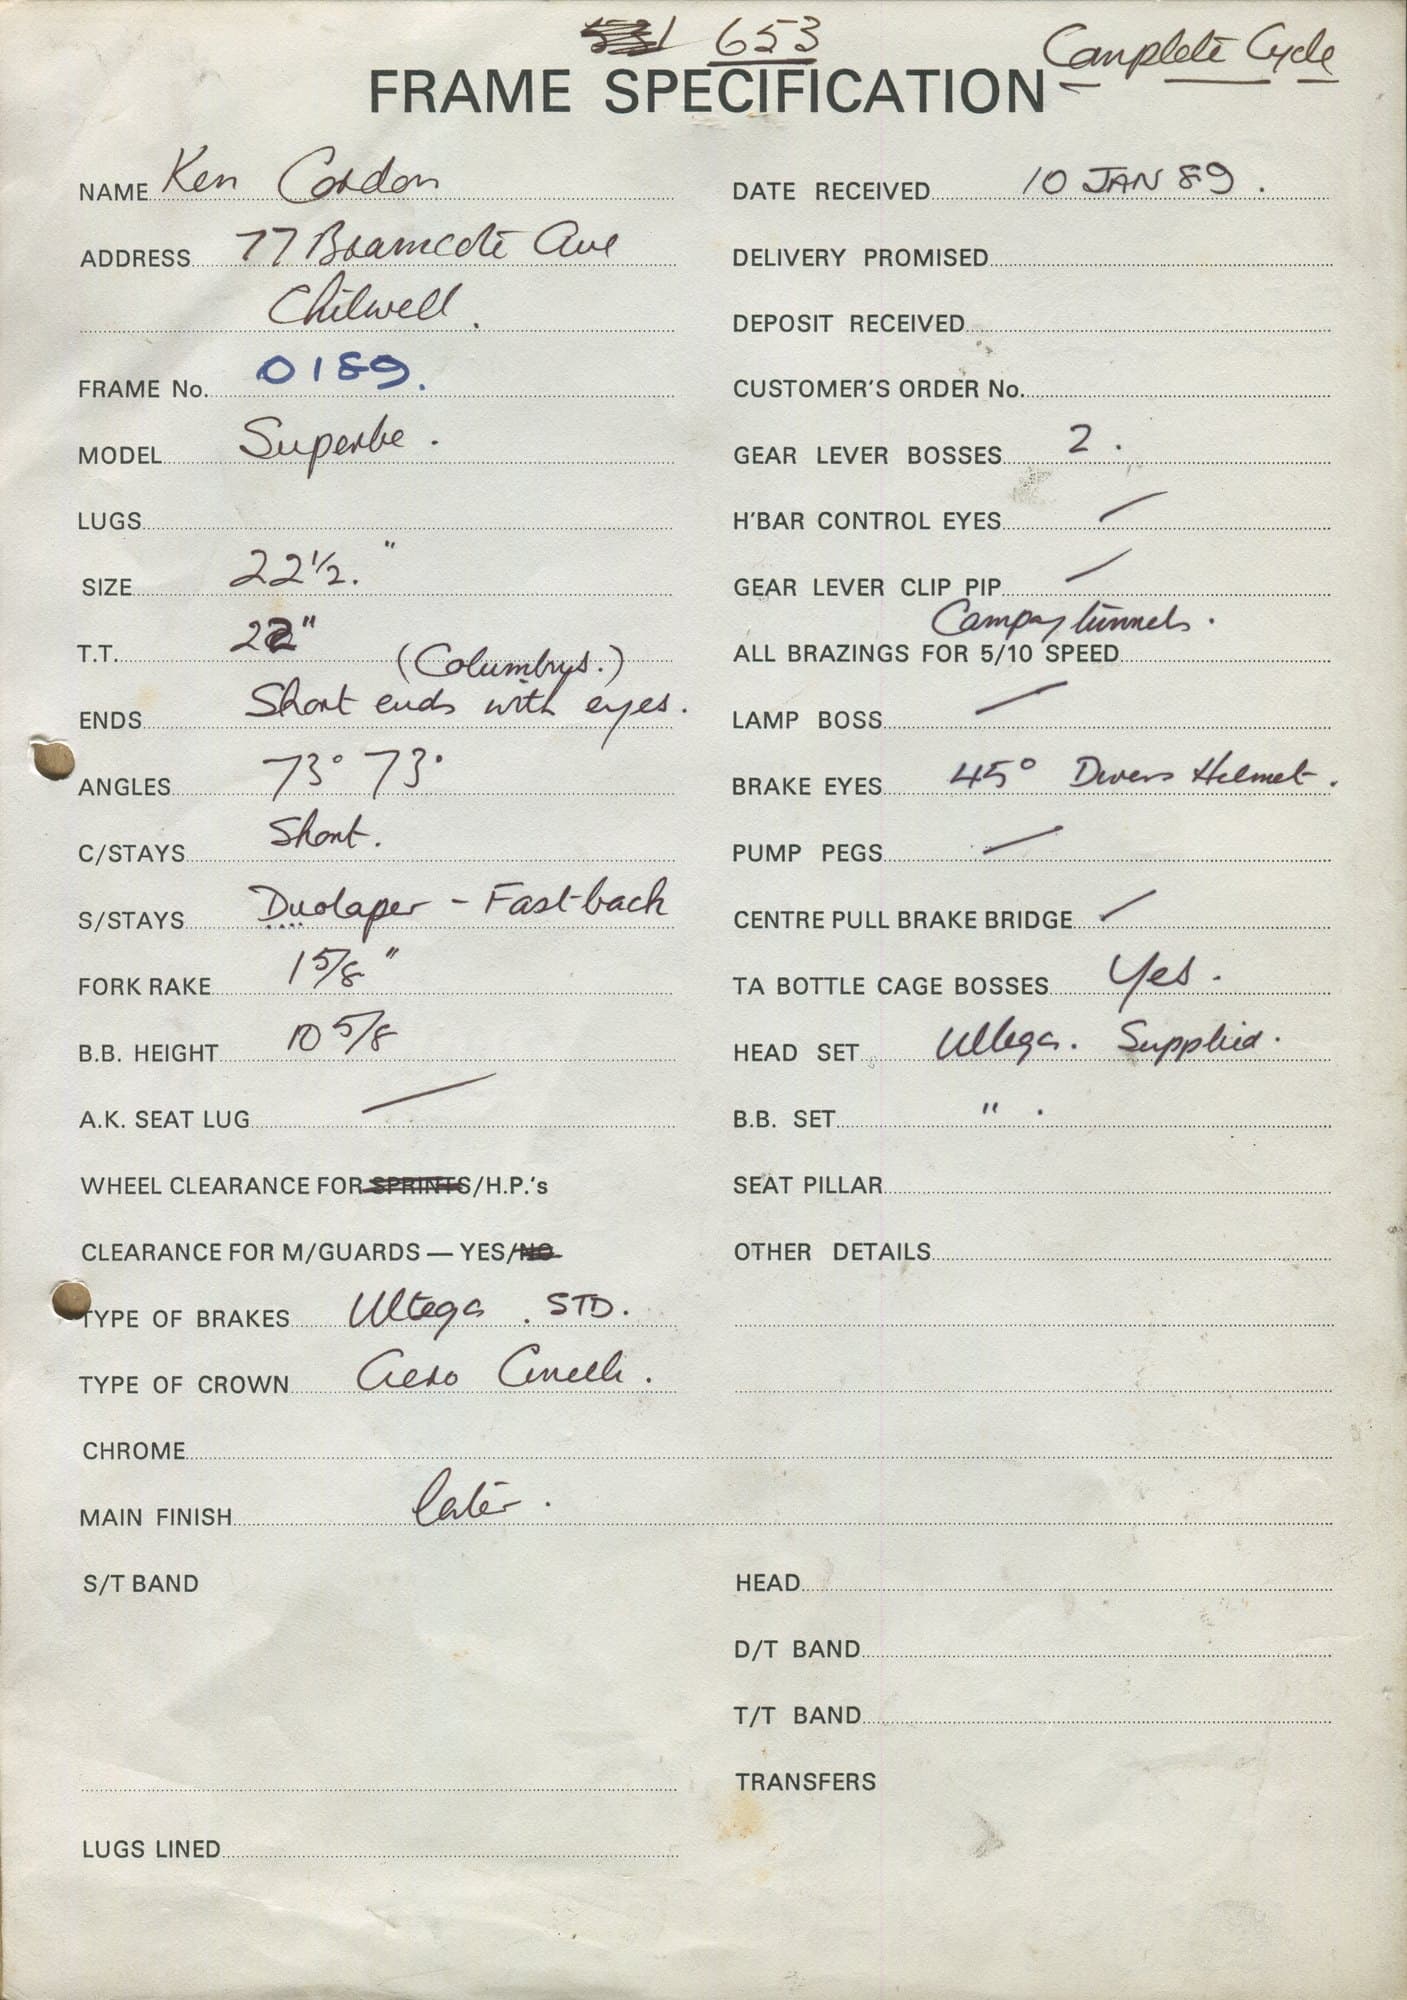 531 653 Complete Cycle
FRAME SPECIFICATION
NAME Ken Cordon
ADDRESS 77 Bramcote Ave
Chilwell.
FRAME No. 0189.
MODEL Superbe.
LUGS
SIZE 22 1/2."
T.T. 22"
ENDS (Columbus.) Short ends with eyes.
ANGLES 73° 73°
C/STAYS Short.
S/STAYS Duotaper - Fastback
FORK RAKE 1 5/8"
B.B. HEIGHT 10 5/8
A.K. SEAT LUG /
WHEEL CLEARANCE FOR SPRINTS/H.P.'s
CLEARANCE FOR M/GUARDS — YES/NO
TYPE OF BRAKES Ultega. STD.
TYPE OF CROWN Aero Cinelli.
CHROME
MAIN FINISH later.
S/T BAND
LUGS LINED
DATE RECEIVED 10 JAN 89.
DELIVERY PROMISED
DEPOSIT RECEIVED
CUSTOMER'S ORDER No.
GEAR LEVER BOSSES 2.
H'BAR CONTROL EYES /
GEAR LEVER CLIP PIP /
ALL BRAZINGS FOR 5/10 SPEED Campag tunnels.
LAMP BOSS /
BRAKE EYES 45° Divers Helmet.
PUMP PEGS /
CENTRE PULL BRAKE BRIDGE /
TA BOTTLE CAGE BOSSES Yes.
HEAD SET Ultega. Supplied.
B.B. SET " .
SEAT PILLAR
OTHER DETAILS
HEAD
D/T BAND
T/T BAND
TRANSFERS